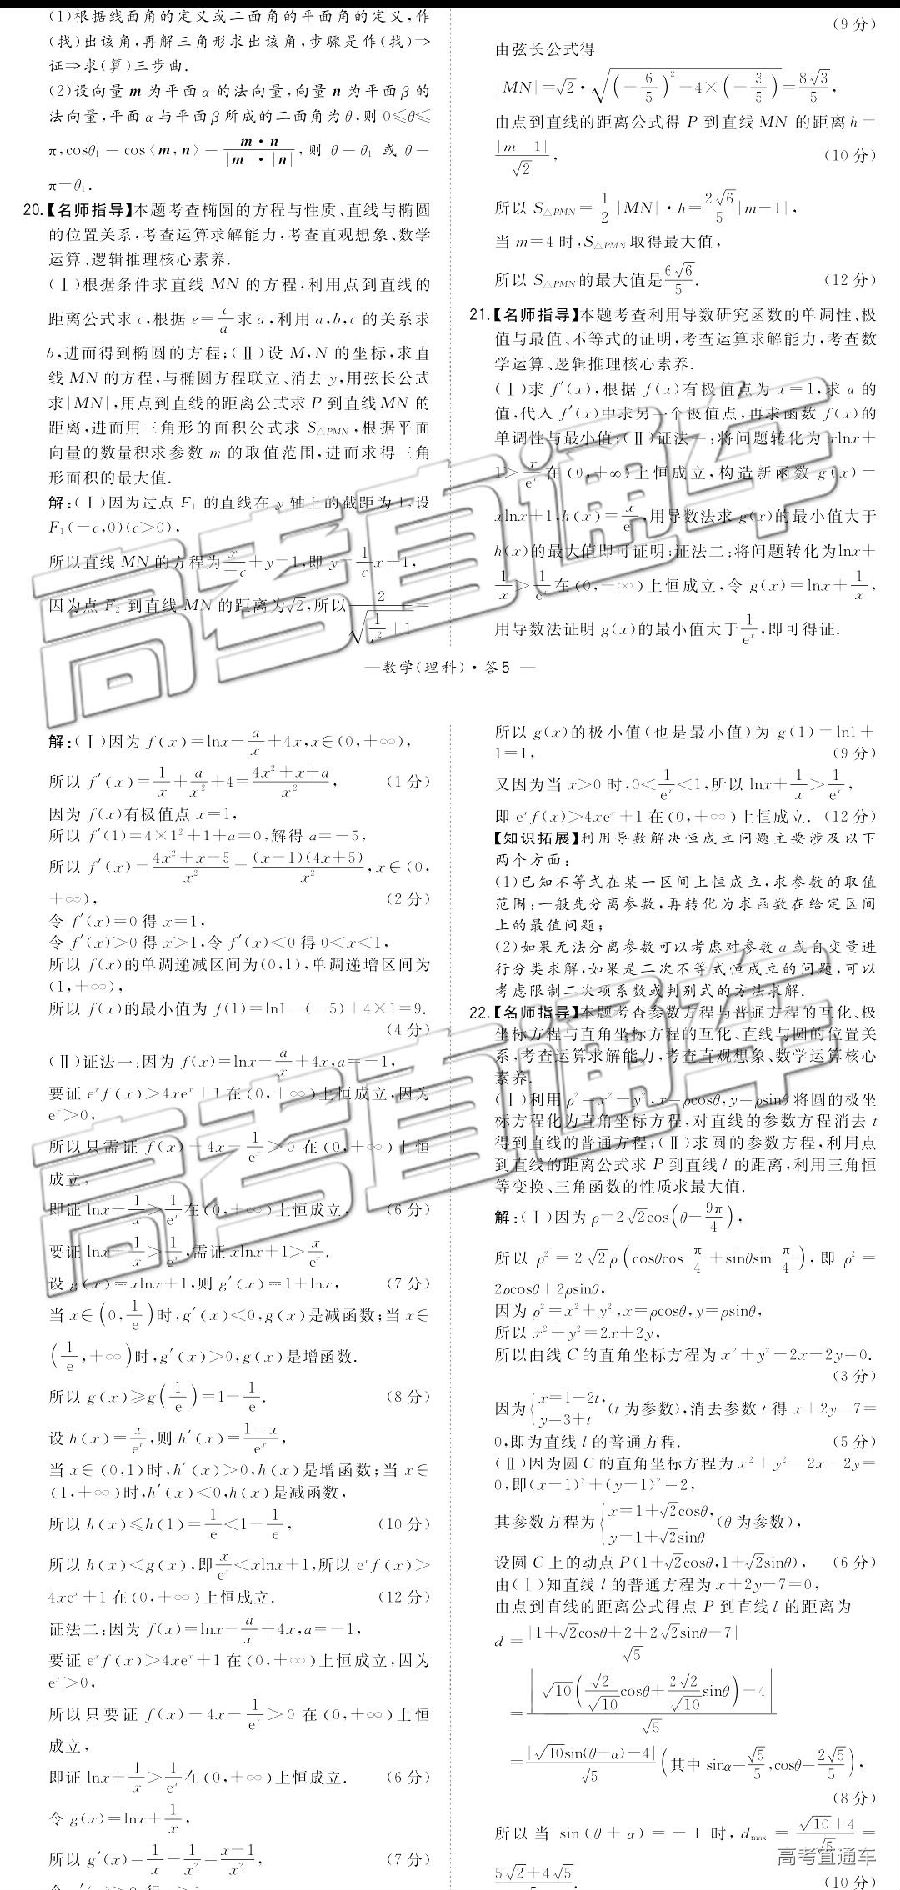 (1)根据线面角的定义或二面角的平面角的定义,作
(找)出该角,再解三角形求出该角,步骤是作(找)⇒
证⇒求(算)三步曲.
(2)设向量 m 为平面 α 的法向量,向量 n 为平面 β 的
法向量,平面 α 与平面 β 所成的二面角为 θ,则 0≤θ≤
π,cosθ₁=cos⟨m,n⟩=m·n/|m|·|n|,则 θ=θ₁ 或 θ=
π-θ₁.
20.【名师指导】本题考查椭圆的方程与性质、直线与椭圆
的位置关系,考查运算求解能力,考查直观想象、数学
运算、逻辑推理核心素养.
(Ⅰ)根据条件求直线 MN 的方程,利用点到直线的
距离公式求 c,根据 e=c/a 求 a,利用 a,b,c 的关系求
b,进而得到椭圆的方程;(Ⅱ)设 M,N 的坐标,求直
线 MN 的方程,与椭圆方程联立、消去 y,用弦长公式
求|MN|,用点到直线的距离公式求 P 到直线 MN 的
距离,进而用三角形的面积公式求 S△PMN,根据平面
向量的数量积求参数 m 的取值范围,进而求得三角
形面积的最大值.
解:(Ⅰ)因为过点 F₁ 的直线在 y 轴上的截距为 1,设
F₁(-c,0)(c>0),
所以直线 MN 的方程为
因为点 F₂ 到直线 MN 的距离为√2,所以
(9 分)
由弦长公式得
|MN|=√2·√((-6/5)²-4×(-3/5))=8√3/5,
由点到直线的距离公式得 P 到直线 MN 的距离 h=
|m-1|/√2,(10 分)
所以 S△PMN=1/2|MN|·h=2√6/5|m-1|,
当 m=4 时,S△PMN取得最大值,
所以 S△PMN的最大值是6√6/5.(12 分)
21.【名师指导】本题考查利用导数研究函数的单调性、极
值与最值、不等式的证明,考查运算求解能力,考查数
学运算、逻辑推理核心素养.
(Ⅰ)求 f′(x),根据 f(x)有极值点为 x=1,求 a 的
值,代入 f′(x)中求另一个极值点,再求函数 f(x)的
单调性与最小值;(Ⅱ)证法一:将问题转化为 xlnx+
1>x/eˣ 在(0,+∞)上恒成立,构造新函数 g(x)=
xlnx+1,h(x)=x/eˣ,用导数法求 g(x)的最小值大于
h(x)的最大值即可证明;证法二:将问题转化为lnx+
1/x>1/eˣ在(0,+∞)上恒成立,令 g(x)=lnx+1/x,
用导数法证明 g(x)的最小值大于1/eˣ,即可得证.
—数学(理科)·答5 —
解:(Ⅰ)因为 f(x)=lnx-a/x+4x,x∈(0,+∞),
所以 f′(x)=1/x+a/x²+4=4x²+x+a/x²,(1 分)
因为 f(x)有极值点 x=1,
所以 f′(1)=4×1²+1+a=0,解得 a=-5,
所以 f′(x)=4x²+x-5/x²=(x-1)(4x+5)/x²,x∈(0,
+∞),(2 分)
令 f′(x)=0 得 x=1,
令 f′(x)>0 得 x>1,令 f′(x)<0 得 0<x<1,
所以 f(x)的单调递减区间为(0,1),单调递增区间为
(1,+∞),
所以 f(x)的最小值为 f(1)=ln1-(-5)+4×1=9.
(4 分)
(Ⅱ)证法一:因为 f(x)=lnx-a/x+4x,a=-1,
要证 eˣf(x)>4xeˣ+1 在(0,+∞)上恒成立,因为
eˣ>0,
所以只需证 f(x)-4x-1/eˣ>0 在(0,+∞)上恒
成立,
即证 lnx+1/x>1/eˣ在(0,+∞)上恒成立,(6 分)
要证 lnx+1/x>1/eˣ,需证 xlnx+1>x/eˣ.
设 g(x)=xlnx+1,则 g′(x)=1+lnx,(7 分)
当 x∈(0,1/e)时,g′(x)<0,g(x)是减函数;当 x∈
(1/e,+∞)时,g′(x)>0,g(x)是增函数.
所以 g(x)≥g(1/e)=1-1/e.(8 分)
设 h(x)=x/eˣ,则 h′(x)=1-x/eˣ,
当 x∈(0,1)时,h′(x)>0,h(x)是增函数;当 x∈
(1,+∞)时,h′(x)<0,h(x)是减函数,
所以 h(x)≤h(1)=1/e<1-1/e,(10 分)
所以 h(x)<g(x),即x/eˣ<xlnx+1,所以 eˣf(x)>
4xeˣ+1 在(0,+∞)上恒成立.(12 分)
证法二:因为 f(x)=lnx-a/x-4x,a=-1,
要证 eˣf(x)>4xeˣ+1 在(0,+∞)上恒成立,因为
eˣ>0,
所以只要证 f(x)-4x-1/eˣ>0 在(0,+∞)上恒
成立,
即证 lnx+1/x>1/eˣ在(0,+∞)上恒成立.(6 分)
令 g(x)=lnx+1/x,
所以 g′(x)=1/x-1/x²=x-1/x²,(7 分)
所以 g(x)的极小值(也是最小值)为 g(1)=ln1+
1=1,(9 分)
又因为当 x>0 时,0<1/eˣ<1,所以 lnx+1/x>1/eˣ,
即 eˣf(x)>4xeˣ+1 在(0,+∞)上恒成立.(12 分)
【知识拓展】利用导数解决恒成立问题主要涉及以下
两个方面:
(1)已知不等式在某一区间上恒成立,求参数的取值
范围:一般先分离参数,再转化为求函数在给定区间
上的最值问题;
(2)如果无法分离参数可以考虑对参数 a 或自变量进
行分类求解,如果是二次不等式恒成立的问题,可以
考虑限制二次项系数或判别式的方法求解.
22.【名师指导】本题考查参数方程与普通方程的互化、极
坐标方程与直角坐标方程的互化、直线与圆的位置关
系,考查运算求解能力,考查直观想象、数学运算核心
素养.
(Ⅰ)利用 ρ²=x²+y²,x=ρcosθ,y=ρsinθ将圆的极坐
标方程化为直角坐标方程,对直线的参数方程消去 t
得到直线的普通方程;(Ⅱ)求圆的参数方程,利用点
到直线的距离公式求 P 到直线 l 的距离,利用三角恒
等变换、三角函数的性质求最大值.
解:(Ⅰ)因为 ρ=2√2cos(θ-9π/4),
所以 ρ²=2√2ρ(cosθcos π/4+sinθsin π/4),即 ρ²=
2ρcosθ+2ρsinθ,
因为 ρ²=x²+y²,x=ρcosθ,y=ρsinθ,
所以 x²+y²=2x+2y,
所以曲线 C 的直角坐标方程为 x²+y²-2x-2y=0.
(3 分)
因为{x=1-2t,y=3+t(t 为参数),消去参数 t 得 x+2y-7=
0,即为直线 l 的普通方程.(5 分)
(Ⅱ)因为圆 C 的直角坐标方程为 x²+y²-2x-2y=
0,即(x-1)²+(y-1)²=2,
其参数方程为{x=1+√2cosθ,y=1+√2sinθ(θ 为参数),
设圆 C 上的动点 P(1+√2cosθ,1+√2sinθ),(6 分)
由(Ⅰ)知直线 l 的普通方程为 x+2y-7=0,
由点到直线的距离公式得点 P 到直线 l 的距离为
d=|1+√2cosθ+2+2√2sinθ-7|/√5
=|√10(√2/√10cosθ+2√2/√10sinθ)-4|/√5
=|√10sin(θ+α)-4|/√5(其中 sinα=√5/5,cosθ=2√5/5),
(8 分)
所以当 sin(θ+α)=-1 时,dmax=√10+4/√5=
5√2+4√5
(10 分)
高考直通车
高考直通车
高考直通车